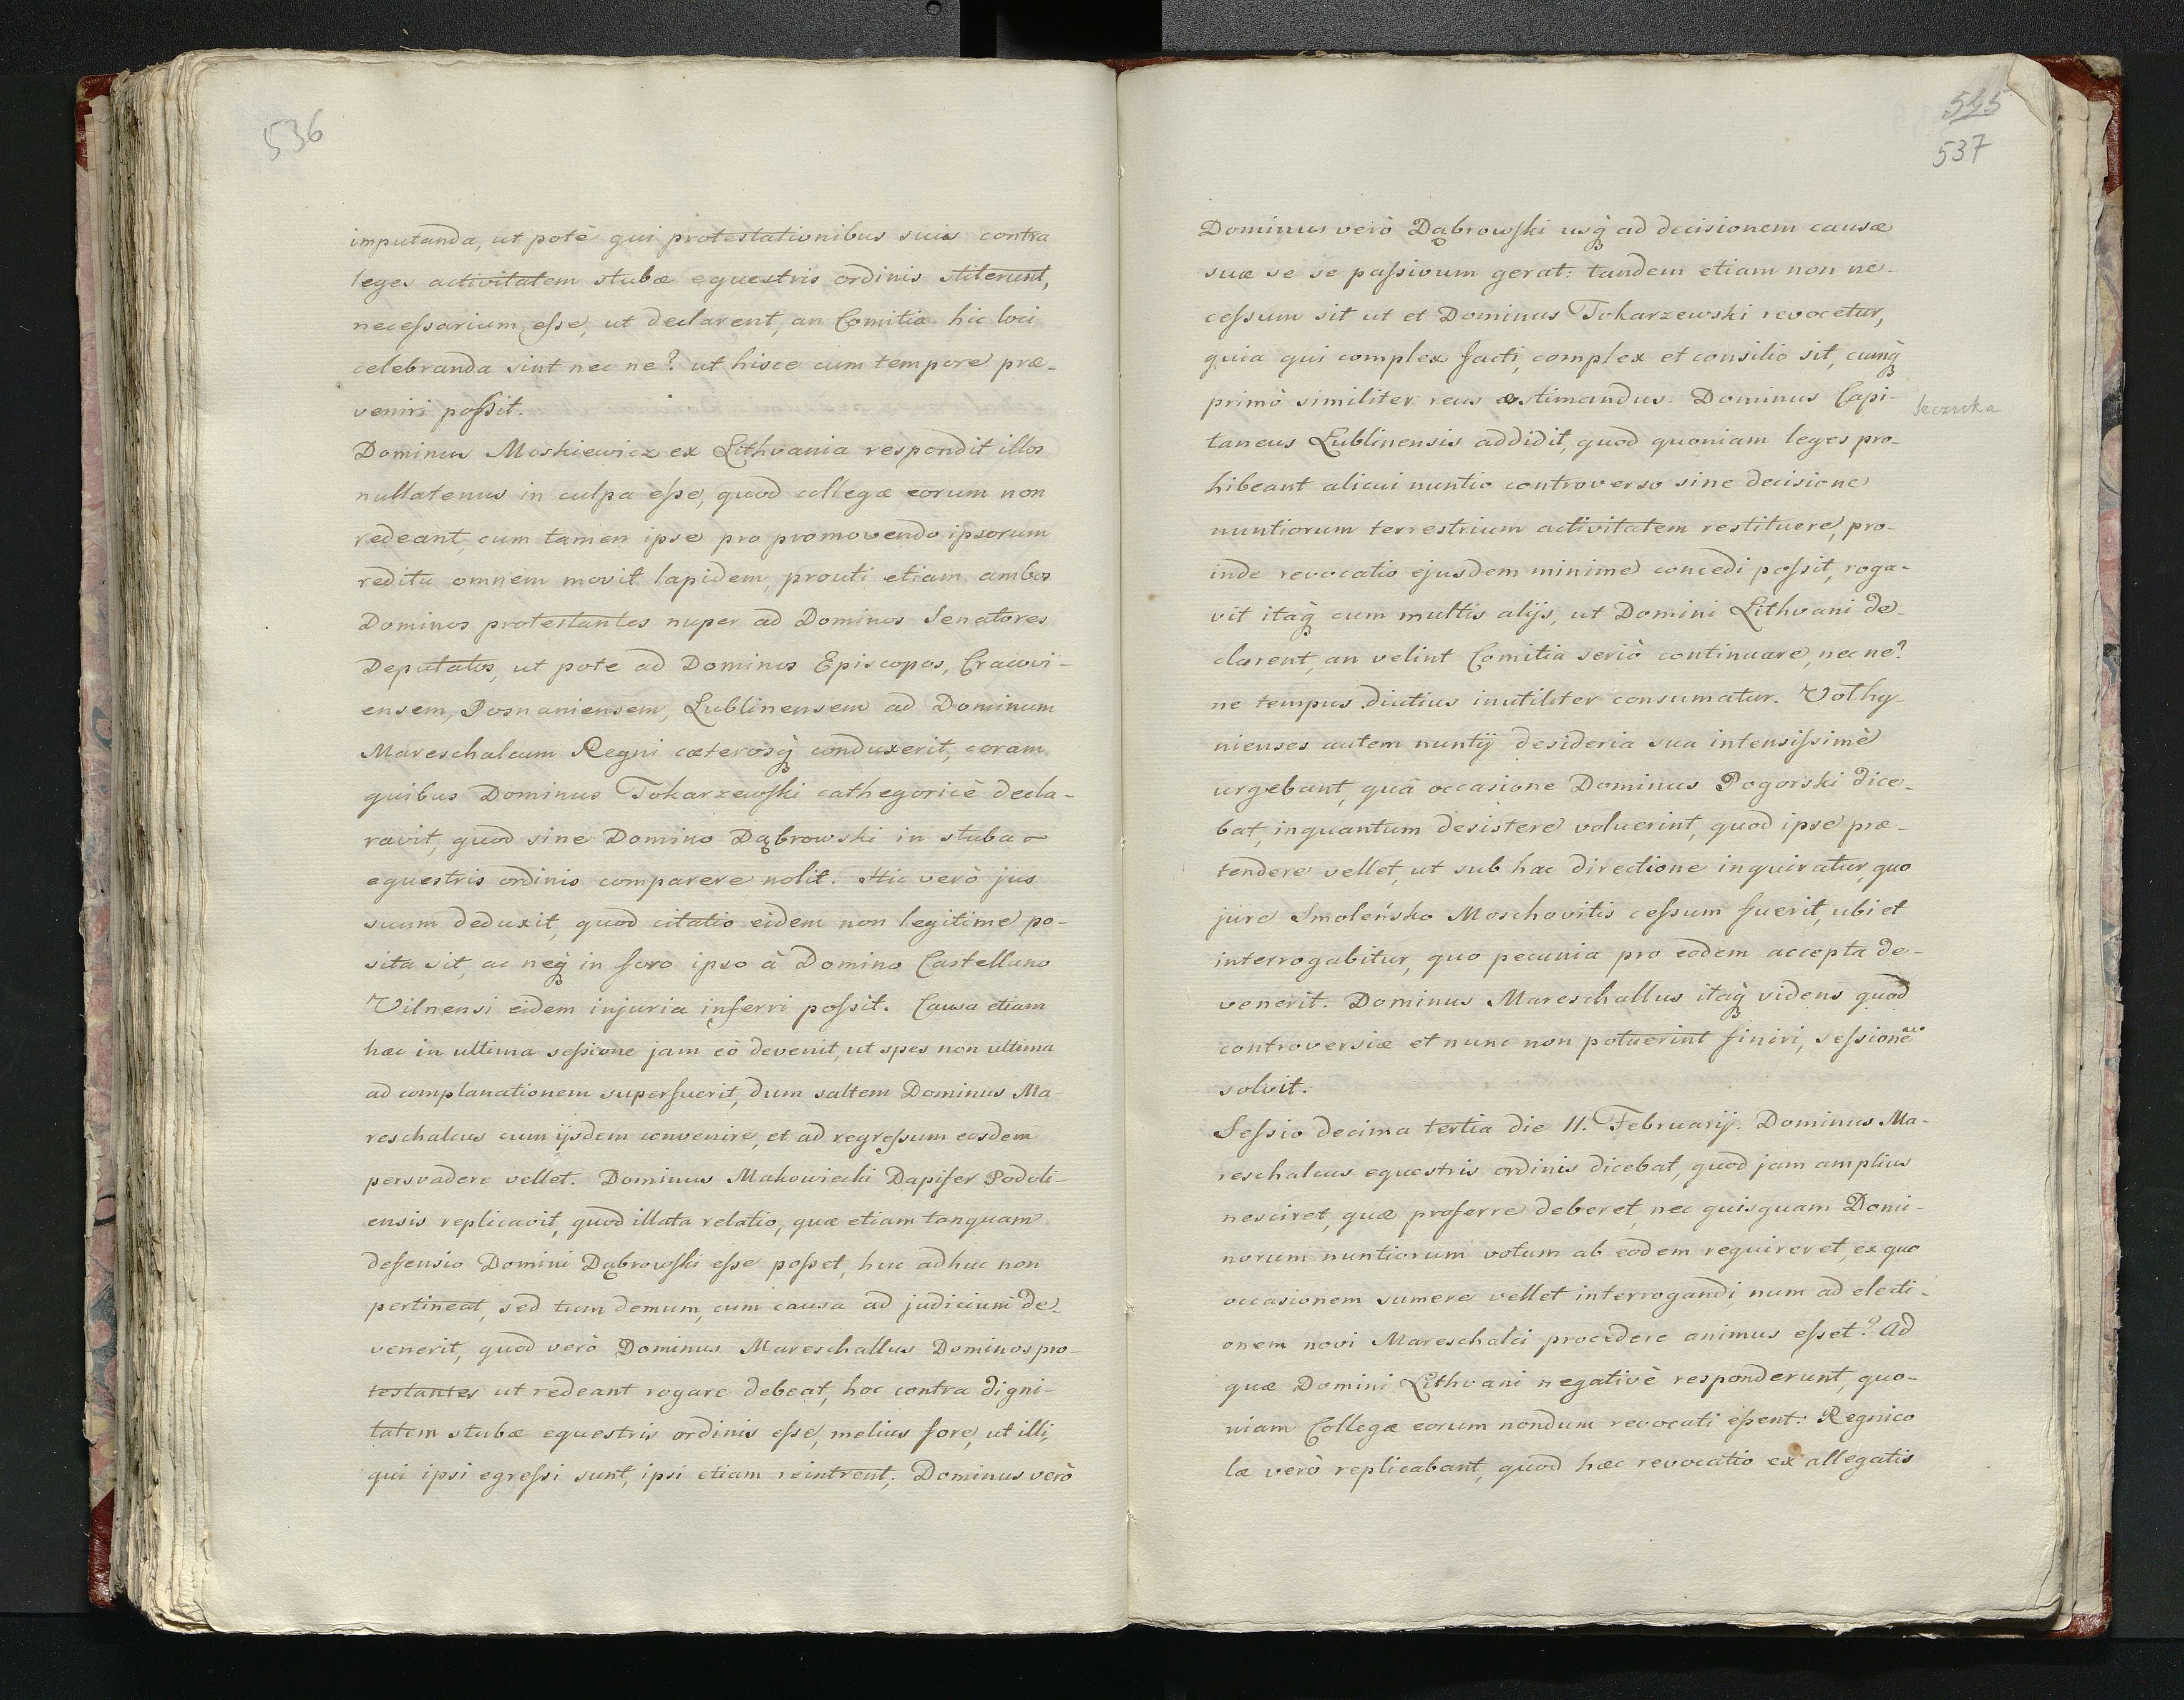 536
imputanda, ut potè qui protestationibus suis contra
leges activitatem stubæ equestris ordinis stiterunt,
necessarium, esse, ut declarent, an Comitia hic loci
celebranda sint nec ne? ut hisce cum tempore præ-
veniri possit.
Dominus Moskiewicz ex Lithvania respondit illos
nullatenus in culpa esse, quod collegæ eorum non
redeant, cum tamen ipse pro promovendo ipsorum
reditu omnem movit lapidem, prouti etiam ambos
Dominos protestantes nuper ad Dominos Senatores
Deputatos, ut pote ad Dominos Episcopos, Cracovi-
ensem, Posnaniensem, Lublinensem ad Dominum
Mareschalcum Regni cæterosq̀ conduxerit, coram
quibus Dominus Tokarzewski cathegoricè decla-
ravit, quod sine Domino Dąbrowski in stuba
equestris ordinis comparere nolit. Hic verò jus
suum deduxit, quod citatio eidem non legitime po-
sita sit, ac neq̀ in foro ipso à Domino Castellano
Vilnensi eidem injuria inferri possit. Causa etiam
hæc in ultima sessione jam eò devenit, ut spes non ultima
ad complanationem superfuerit, dum saltem Dominus Ma-
reschalcus cum ijsdem convenire, et ad regressum eosdem
persvadere vellet. Dominus Makowiecki Dapifer Podoli-
ensis replicavit, quod illata relatio, quæ etiam tanquam
defensio Domini Dąbrowski esse posset, huc adhuc non
pertineat, sed tum demum, cum causa ad judicium de-
venerit, quod verò Dominus Mareschallus Dominos pro-
testantes ut redeant rogare debeat, hoc contra digni-
tatem stubæ equestris ordinis esse, melius fore, ut illi,
qui ipsi egressi sunt, ipsi etiam reintrent, Dominus verò
545
537
Dominus verò Dąbrowski usq̀ ad decisionem causæ
suæ se se passivum gerat: tandem etiam non ne-
cessum sit ut et Dominus Tokarzewski revocetur,
quia qui complex facti, complex et consilio sit, cumq̀
primò similiter reus æstimandus. Dominus Capi-
taneus Lublinensis addidit, quod quoniam leges pro-
hibeant alicui nuntio controverso sine decisione
nuntiorum terrestrium activitatem restituere, pro-
inde revocatio ejusdem minime concedi possit, roga-
vit itaq̀ cum multis alijs, ut Domini Lithvani de-
clarent, an velint Comitia seriò continuare, nec ne?
ne tempus diutius inutiliter consumatur. Volhy-
nienses autem nuntij desideria sua intensissimè
urgebant, quâ occasione Dominus Pogorski dice-
bat, inquantum desistere voluerint, quod ipse præ-
tendere vellet, ut sub hac directione inquiratur, quo
jure Smoleńsko Moschovitis cessum fuerit, ubi et
interrogabitur, quo pecunia pro eodem accepta de-
venerit. Dominus Mareschallus itaq̀ videns quod
controversiæ et nunc non potuerint finiri, sessionē
solvit.
Sessio decima tertia die 11. Februarij. Dominus Ma-
reschalcus equestris ordinis dicebat, quod jam amplius
nesciret, quæ proferre deberet, nec quisquam Domi-
norum nuntiorum votum ab eodem requireret, ex quo
occasionem sumere vellet interrogandi, num ad electi-
onem novi Mareschalci procedere animus esset? Ad
quæ Domini Lithvani negativè responderunt, quo-
niam Collegæ eorum nondum revocati essent: Regnico
læ verò replicabant, quod hæc revocatio ex allegatis